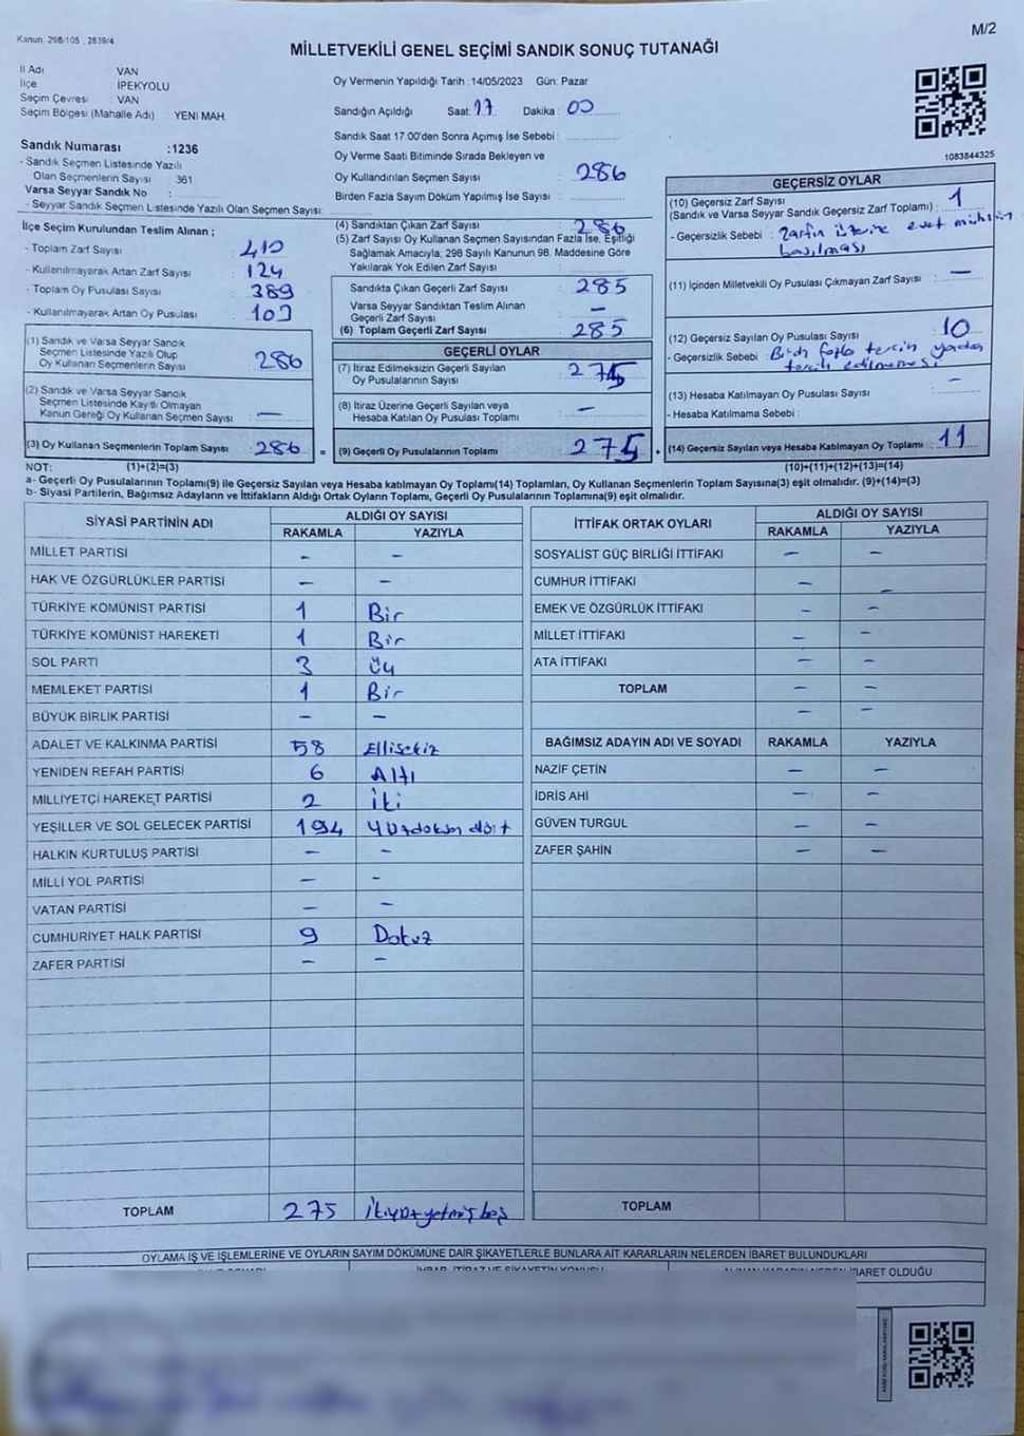 Kanun: 298/105 ; 2839/4
M/2
MİLLETVEKİLİ GENEL SEÇİMİ SANDIK SONUÇ TUTANAĞI
İl Adı VAN
İlçe İPEKYOLU
Seçim Çevresi VAN
Seçim Bölgesi (Mahalle Adı) YENİ MAH.
Sandık Numarası :1236
- Sandık Seçmen Listesinde Yazılı
Olan Seçmenlerin Sayısı : 361
Varsa Seyyar Sandık No :
- Seyyar Sandık Seçmen Listesinde Yazılı Olan Seçmen Sayısı:
Oy Vermenin Yapıldığı Tarih :14/05/2023 Gün: Pazar
Sandığın Açıldığı Saat: 17 Dakika : 00
Sandık Saat 17.00'den Sonra Açımış İse Sebebi :
Oy Verme Saati Bitiminde Sırada Bekleyen ve
Oy Kullandırılan Seçmen Sayısı : 286
Birden Fazla Sayım Döküm Yapılmış İse Sayısı :
1083844325
İlçe Seçim Kurulundan Teslim Alınan ;
- Toplam Zarf Sayısı : 410
- Kullanılmayarak Artan Zarf Sayısı : 124
- Toplam Oy Pusulası Sayısı : 389
- Kullanılmayarak Artan Oy Pusulası : 103
(1) Sandık ve Varsa Seyyar Sandık
Seçmen Listesinde Yazılı Olup
Oy Kullanan Seçmenlerin Sayısı 286
(2) Sandık ve Varsa Seyyar Sandık
Seçmen Listesinde Kayıtlı Olmayan
Kanun Gereği Oy Kullanan Seçmen Sayısı —
(3) Oy Kullanan Seçmenlerin Toplam Sayısı 286 =
(4) Sandıktan Çıkan Zarf Sayısı : 286
(5) Zarf Sayısı Oy Kullanan Seçmen Sayısından Fazla İse, Eşitliği
Sağlamak Amacıyla, 298 Sayılı Kanunun 98. Maddesine Göre
Yakılarak Yok Edilen Zarf Sayısı :
Sandıkta Çıkan Geçerli Zarf Sayısı : 285
Varsa Seyyar Sandıktan Teslim Alınan
Geçerli Zarf Sayısı : —
(6) Toplam Geçerli Zarf Sayısı : 285
GEÇERLİ OYLAR
(7) İtiraz Edilmeksizin Geçerli Sayılan
Oy Pusulalarının Sayısı : 275
(8) İtiraz Üzerine Geçerli Sayılan veya
Hesaba Katılan Oy Pusulası Toplamı : —
(9) Geçerli Oy Pusulalarının Toplamı : 275 +
GEÇERSİZ OYLAR
(10) Geçersiz Zarf Sayısı
(Sandık ve Varsa Seyyar Sandık Geçersiz Zarf Toplamı) : 1
- Geçersizlik Sebebi : Zarfın üzerine evet mührün
basılması
(11) İçinden Milletvekili Oy Pusulası Çıkmayan Zarf Sayısı : —
(12) Geçersiz Sayılan Oy Pusulası Sayısı : 10
- Geçersizlik Sebebi : Birden fazla tercih yada
tercih edilmemesi
(13) Hesaba Katılmayan Oy Pusulası Sayısı : —
- Hesaba Katılmama Sebebi :
(14) Geçersiz Sayılan veya Hesaba Katılmayan Oy Toplamı : 11
NOT: (1)+(2)=(3) (10)+(11)+(12)+(13)=(14)
a- Geçerli Oy Pusulalarının Toplamı(9) ile Geçersiz Sayılan veya Hesaba katılmayan Oy Toplamı(14) Toplamları, Oy Kullanan Seçmenlerin Toplam Sayısına(3) eşit olmalıdır. (9)+(14)=(3)
b- Siyasi Partilerin, Bağımsız Adayların ve İttifakların Aldığı Ortak Oyların Toplamı, Geçerli Oy Pusulalarının Toplamına(9) eşit olmalıdır.
SİYASİ PARTİNİN ADI ALDIĞI OY SAYISI
RAKAMLA YAZIYLA
MİLLET PARTİSİ — —
HAK VE ÖZGÜRLÜKLER PARTİSİ — —
TÜRKİYE KOMÜNİST PARTİSİ 1 Bir
TÜRKİYE KOMÜNİST HAREKETİ 1 Bir
SOL PARTİ 3 üç
MEMLEKET PARTİSİ 1 Bir
BÜYÜK BİRLİK PARTİSİ — —
ADALET VE KALKINMA PARTİSİ 58 Ellisekiz
YENİDEN REFAH PARTİSİ 6 Altı
MİLLİYETÇİ HAREKET PARTİSİ 2 iki
YEŞİLLER VE SOL GELECEK PARTİSİ 194 Yüzdoksandört
HALKIN KURTULUŞ PARTİSİ — —
MİLLİ YOL PARTİSİ — —
VATAN PARTİSİ — —
CUMHURİYET HALK PARTİSİ 9 Dokuz
ZAFER PARTİSİ — —
TOPLAM 275 ikiyüzyetmişbeş
İTTİFAK ORTAK OYLARI ALDIĞI OY SAYISI
RAKAMLA YAZIYLA
SOSYALİST GÜÇ BİRLİĞİ İTTİFAKI — —
CUMHUR İTTİFAKI — —
EMEK VE ÖZGÜRLÜK İTTİFAKI — —
MİLLET İTTİFAKI — —
ATA İTTİFAKI — —
TOPLAM — —
— —
BAĞIMSIZ ADAYIN ADI VE SOYADI RAKAMLA YAZIYLA
NAZİF ÇETİN — —
İDRİS AHİ — —
GÜVEN TURGUL — —
ZAFER ŞAHİN — —
TOPLAM
OYLAMA İŞ VE İŞLEMLERİNE VE OYLARIN SAYIM DÖKÜMÜNE DAİR ŞİKAYETLERLE BUNLARA AİT KARARLARIN NELERDEN İBARET BULUNDUKLARI
İBARET OLDUĞU